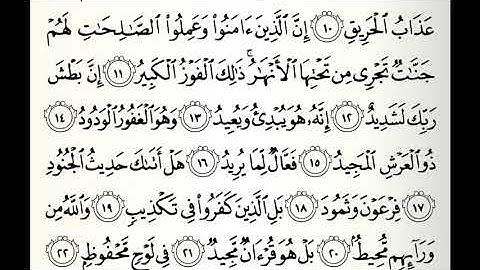 عَذَابُ الْحَرِيقِ ۝١٠ إِنَّ الَّذِينَ ءَامَنُوا۟ وَعَمِلُوا۟ الصَّالِحَاتِ لَهُمْ
جَنَّاتٌ تَجْرِى مِن تَحْتِهَا الْأَنْهَارُ ۚ ذَٰلِكَ الْفَوْزُ الْكَبِيرُ ۝١١ إِنَّ بَطْشَ
رَبِّكَ لَشَدِيدٌ ۝١٢ إِنَّهُۥ هُوَ يُبْدِئُ وَيُعِيدُ ۝١٣ وَهُوَ الْغَفُورُ الْوَدُودُ ۝١٤
ذُو الْعَرْشِ الْمَجِيدُ ۝١٥ فَعَّالٌ لِّمَا يُرِيدُ ۝١٦ هَلْ أَتَىٰكَ حَدِيثُ الْجُنُودِ
۝١٧ فِرْعَوْنَ وَثَمُودَ ۝١٨ بَلِ الَّذِينَ كَفَرُوا۟ فِى تَكْذِيبٍ ۝١٩ وَاللَّهُ مِن
وَرَآئِهِم مُّحِيطٌۢ ۝٢٠ بَلْ هُوَ قُرْءَانٌ مَّجِيدٌ ۝٢١ فِى لَوْحٍ مَّحْفُوظٍۭ ۝٢٢